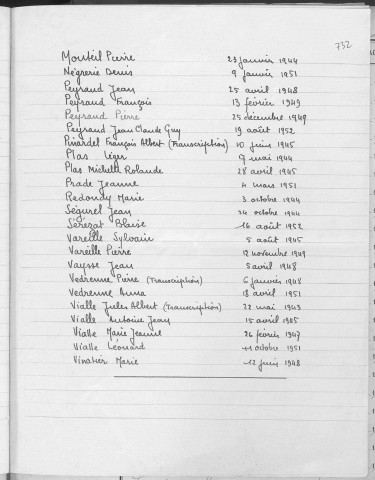 732
Monteil Pierre 23 janvier 1944
Négrerie Denis 9 janvier 1951
Peyraud Jean 25 avril 1948
Peyraud François 13 février 1949
Peyraud Pierre 25 décembre 1949
Peyraud Jean Claude Guy 19 août 1952
Pinardel François Albert (Transcription) 10 juin 1945
Plas Léger 9 mai 1944
Plas Michelle Rolande 28 avril 1945
Prade Jeanne 4 mars 1951
Redondy Marie 3 octobre 1944
Ségurel Jean 24 octobre 1944
Sérézat Blaise 16 août 1952
Vareille Sylvain 5 août 1945
Vareille Pierre 12 novembre 1949
Vaysse Jean 5 avril 1948
Vedrenne Pierre (Transcription) 6 janvier 1948
Vedrenne Anna 18 avril 1951
Vialle Jules Albert (Transcription) 22 mai 1943
Vialle Antoine Jean 15 avril 1945
Vialle Marie Jeanne 26 février 1947
Vialle Léonard 11 octobre 1951
Vinatier Marie 12 juin 1948